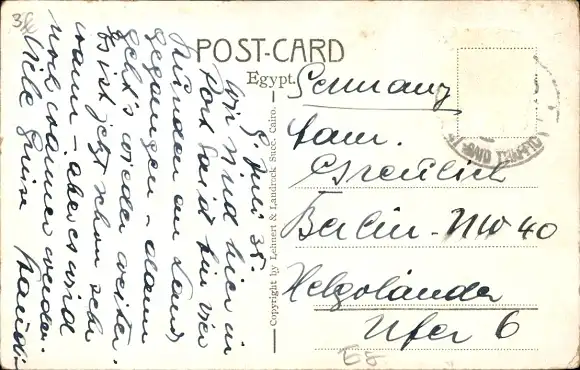 POST-CARD
Egypt.
Germany
Fam.
Greulich
Berlin - NW 40
Helgoländer
Ufer 6
Copyright by Lehnert & Landrock Succ. Cairo.
8 Juli 35.
Wir sind hier in
Port Said für vier
Stunden an Land
gegangen - dann
geht's wieder weiter.
Es ist jetzt schon sehr
warm - aber es wird
noch wärmer werden.
Viele Grüsse